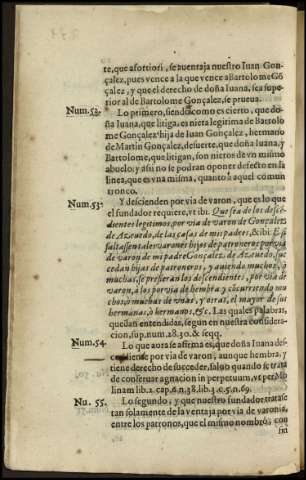 te, que a fortiori, se auentaja nuestro Iuan Gon-
çalez, pues vence a la que vence a Bartolome Gõ
çalez, y que el derecho de doña Iuana, sea supe-
rior al de Bartolome Gonçalez, se prueua.
Num. 52. Lo primero, siendo como es cierto, que do
ña Iuana, que litiga, es nieta legitima de Bartolo
me Gonçalez hija de Iuan Gonçalez, hermano
de Martin Gonçalez, de suerte, que doña Iuana, y
Bartolome, que litigan, son nietos de vn mismo
abuelo; y assi no se podran oponer defecto en la
linea, que es vna misma, quanto a aquel comun
tronco.
Num. 53. Y descienden por via de varon, que es lo que
el fundador requiere, vt ibi: Que sea de los descẽ-
diẽtes legitimos, por via de varon de Gonzalez
de Azeuedo, de las casas de mis padres, & ibi: E si
faltassen tales varones hijos de patronero; por via
de varon de mi padre Gonçalez de Azeuedo, su-
cedan hijas de patroneros, y auiendo muchos, ò
muchas, se prefieran los descendientes, por via de
varon, à los por via de hembra y concurriendo mu
chos, ò muchas de vnas, y otras, el mayor de sus
hermanas, ò hermanos, &c. Las quales palabras,
quedan entendidas, segun en nuestra considera-
cion, sup. num. 28. 30. & seqq.
Num. 54. Lo que aora se afirma es, que doña Iuana des-
ciende por via de varon, aunque hembra, y
tiene derecho de succeder, saluo quando se trata
de conseruar agnacion in perpetuum, vt per Mo
linam lib. 2. cap. 6. n. 38. lib. 3. c. 5. n. 69.
Nu. 55. Lo segundo, y que nuestro fundador trata se
tan solamente de la ventaja por via de varonia,
entre los patronos, que el mismo nombrò, con
sin